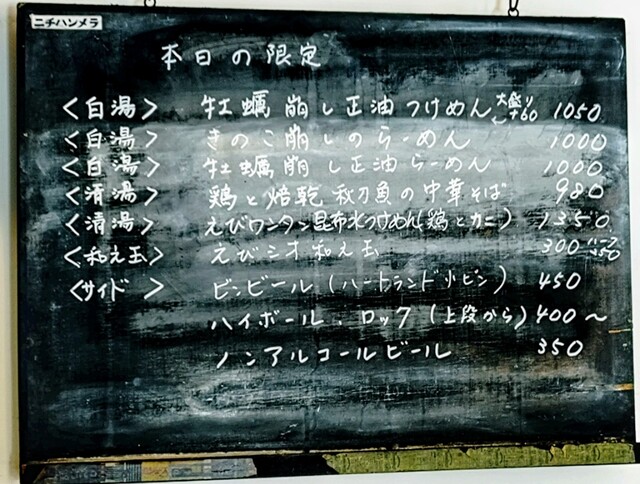 ニチハンメラ
本日の限定
<白湯> 牡蠣崩し正油つけめん 大盛り+60 1050
<白湯> きのこ崩しのらーめん 1000
<白湯> 牡蠣崩し正油らーめん 1000
<清湯> 鶏と焙乾秋刀魚の中華そば 980
<清湯> えびワンタン昆布水つけめん(鶏とカニ) 1350
<和え玉> えびシオ和え玉 300 ハーフ
<サイド> ビンビール(ハートランド小ビン) 450
ハイボール、ロック(上段から) 400〜
ノンアルコールビール 350